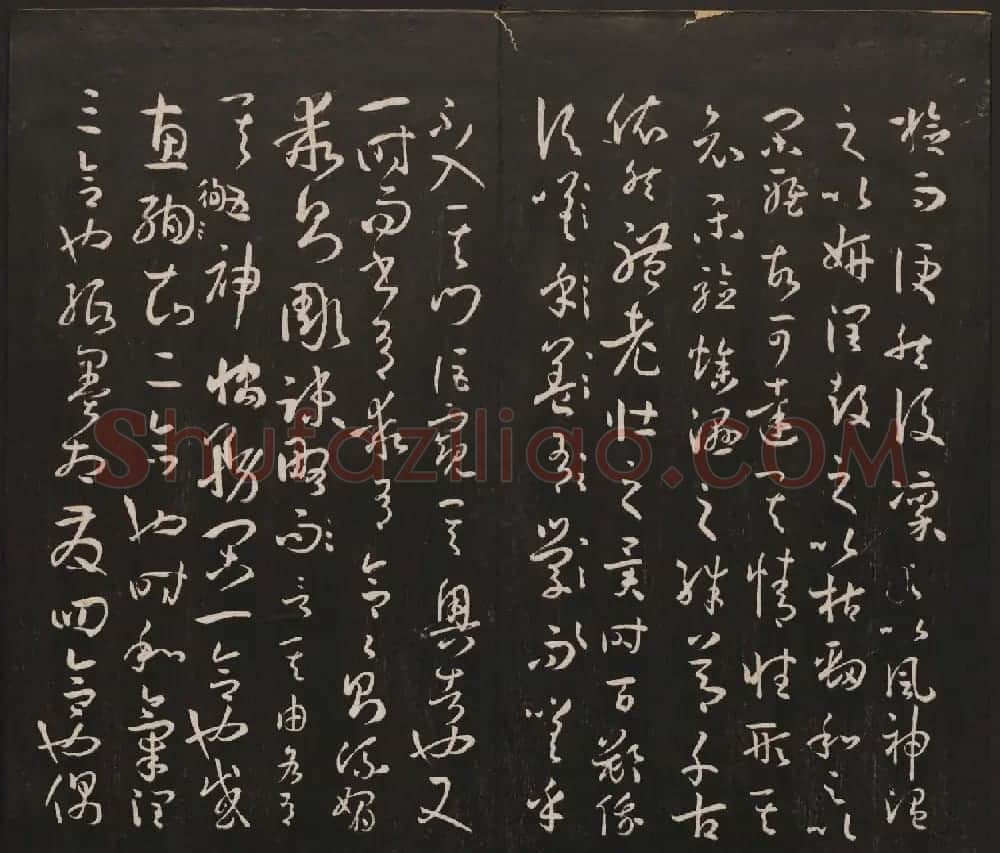 檢而便然後凜之以風神溫
之以妍潤鼓之以枯勁和之以
閑雅故可達其情性形其
哀樂驗燥濕之殊節千古
依然體老壯之異時百齡俄
頃嗟乎
不入其門詎窺其奧者也又
一時而書有乖有合合則流媚
乖則彫踈略言其由各有
其五神怡務閑一合也感
惠徇知二合也時和氣潤
三合也紙墨相發四合也偶
Shufaziliao.COM